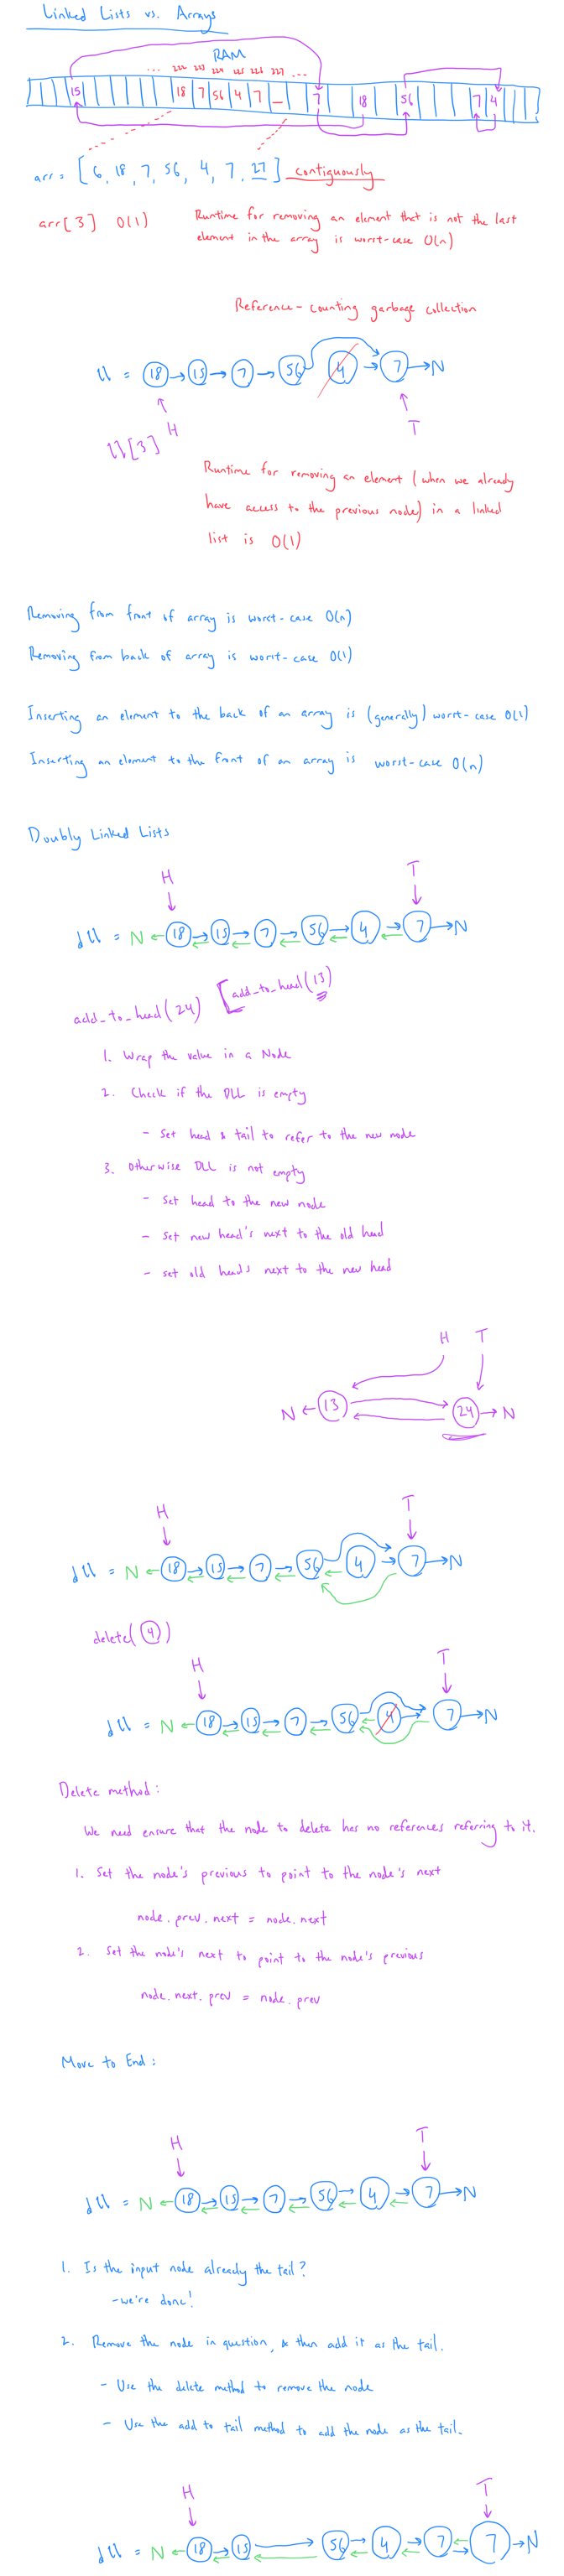 Linked Lists vs. Arrays
RAM
... 222 223 224 225 226 227 ...
15 18 7 56 4 7 _ 7 18 56 7 4
arr = [ 6, 18, 7, 56, 4, 7, 27 ] contiguously
arr[3] O(1)
Runtime for removing an element that is not the last
element in the array is worst-case O(n)
Reference-counting garbage collection
ll = 18 → 15 → 7 → 56 4 → 7 → N
H
T
ll[3]
Runtime for removing an element (when we already
have access to the previous node) in a linked
list is O(1)
Removing from front of array is worst-case O(n)
Removing from back of array is worst-case O(1)
Inserting an element to the back of an array is (generally) worst-case O(1)
Inserting an element to the front of an array is worst-case O(n)
Doubly Linked Lists
H T
dll = N ← 18 → 15 → 7 → 56 → 4 → 7 → N
add_to_head(24) [add_to_head(13)
1. Wrap the value in a Node
2. Check if the DLL is empty
- Set head & tail to refer to the new node
3. Otherwise DLL is not empty
- Set head to the new node
- Set new head's next to the old head
- set old head's next to the new head
H T
N ← 13 24 → N
H T
dll = N ← 18 → 15 → 7 → 56 4 → 7 → N
delete(4)
H T
dll = N ← 18 → 15 → 7 → 56 4 → 7 → N
Delete method:
We need ensure that the node to delete has no references referring to it.
1. Set the node's previous to point to the node's next
node.prev.next = node.next
2. Set the node's next to point to the node's previous
node.next.prev = node.prev
Move to End:
H T
dll = N ← 18 → 15 → 7 → 56 → 4 → 7 → N
1. Is the input node already the tail?
- we're done!
2. Remove the node in question, & then add it as the tail.
- Use the delete method to remove the node
- Use the add to tail method to add the node as the tail.
H T
dll = N ← 18 → 15 → 56 → 4 → 7 → 7 → N